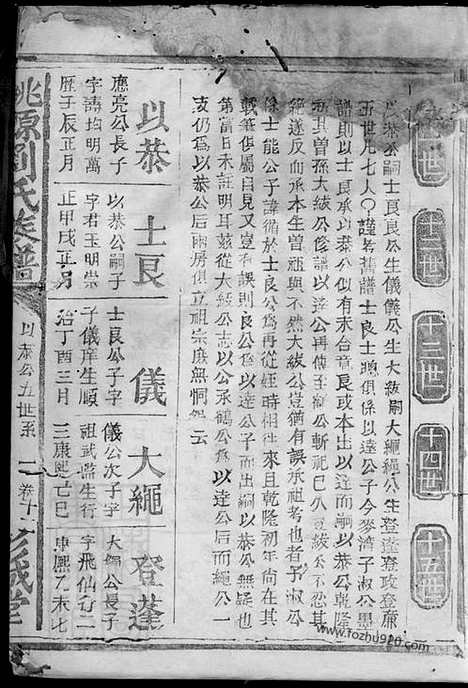 十二世
十三世
十四世
十五世
以恭公嗣士良良公生儀儀公生大紱嗣大繩繩公生登蓬登攻登廉
五世凡七人〇謹考舊譜士良士聰俱係以達公子今麥濟子淑公墨
譜則以士良承以恭公似有未台竟良或本出以達而嗣以恭公乾隆
其曾孫大紱公修譜以達公再傳至子淑公斬祀已久豈紱公不忍其
絕遂反而承本生曾祖與不然大紱公豈猶有誤承祖考也者子淑公
係士能公子諱循於士良公為再從姪時相去來且乾隆初年尚在其
載筆俱屬豈有誤則良公以達公子而出嗣以恭公無疑也
第當日未註明耳茲從大紱公志以公承鶴公為以達公后而繩公一
支仍為以恭公后兩房俱立祖宗庶無恫云
以恭 士良 儀 大繩 登蓬
應亮公長子 以恭公嗣子 士良公子字 儀公次子字 大繩公長子
字諱均明萬 字君玉明崇 子儀庠生順 祖武監生行 字飛仙行二
歷壬辰正月 正甲戌正月 治丁酉三月 三康熙己巳 康熙乙未七
桃源劉氏族譜 以恭公五世系 一 卷十 彭城堂
www.fozhu920.com